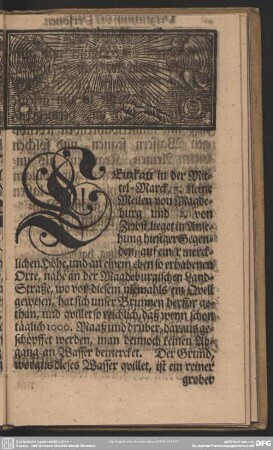 Eitzkau in der Mit-
tel-Marck, 3. kleine
Meilen von Magde-
burg und 2. von
Zerbst, lieget in Anse-
hung hiesiger Gegen-
den, auf einer merck-
lichen Höhe, und an einem eben so erhabenen
Orte, nahe an der Magdeburgischen Land-
Straße, wo vor diesem niemahls ein Quell
gewesen, hat sich unser Brunnen herfür ge-
than, und qvillet so reichlich, daß wenn schon
täglich 1000. Maaß und drüber, daraus ge-
schöpffet werden, man dennoch keinen Ab-
gang an Wasser bemercket. Der Grund,
woraus dieses Wasser qvillet, ist ein reiner
grober